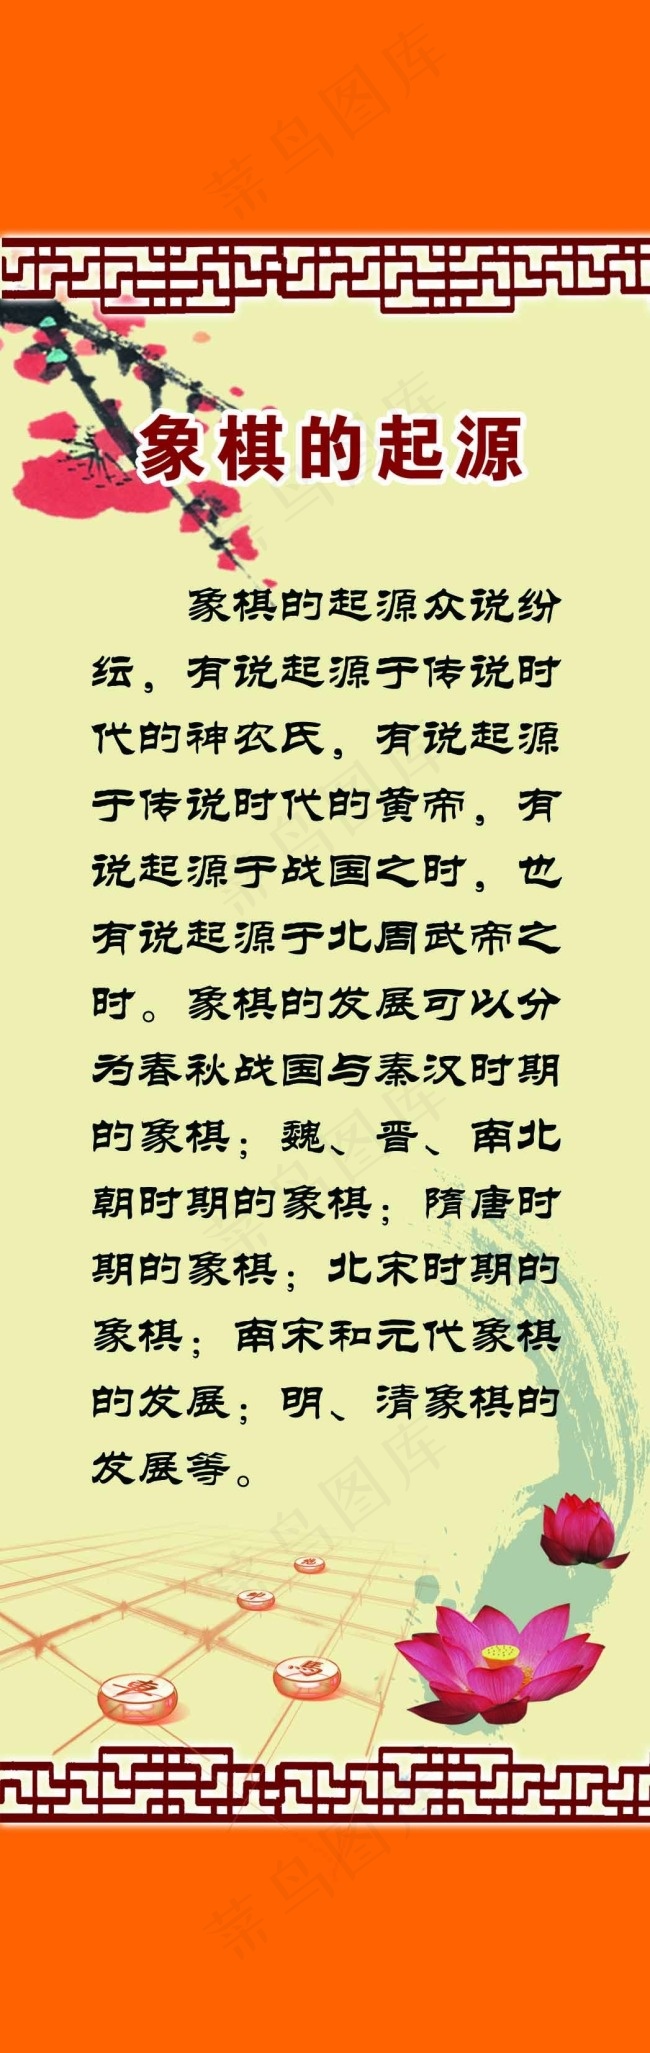 象棋的起源
象棋的起源众说纷
纭，有说起源于传说时
代的神农氏，有说起源
于传说时代的黄帝，有
说起源于战国之时，也
有说起源于北周武帝之
时。象棋的发展可以分
为春秋战国与秦汉时期
的象棋；魏、晋、南北
朝时期的象棋；隋唐时
期的象棋；北宋时期的
象棋；南宋和元代象棋
的发展；明、清象棋的
发展等。
馬
車
菜鸟图库